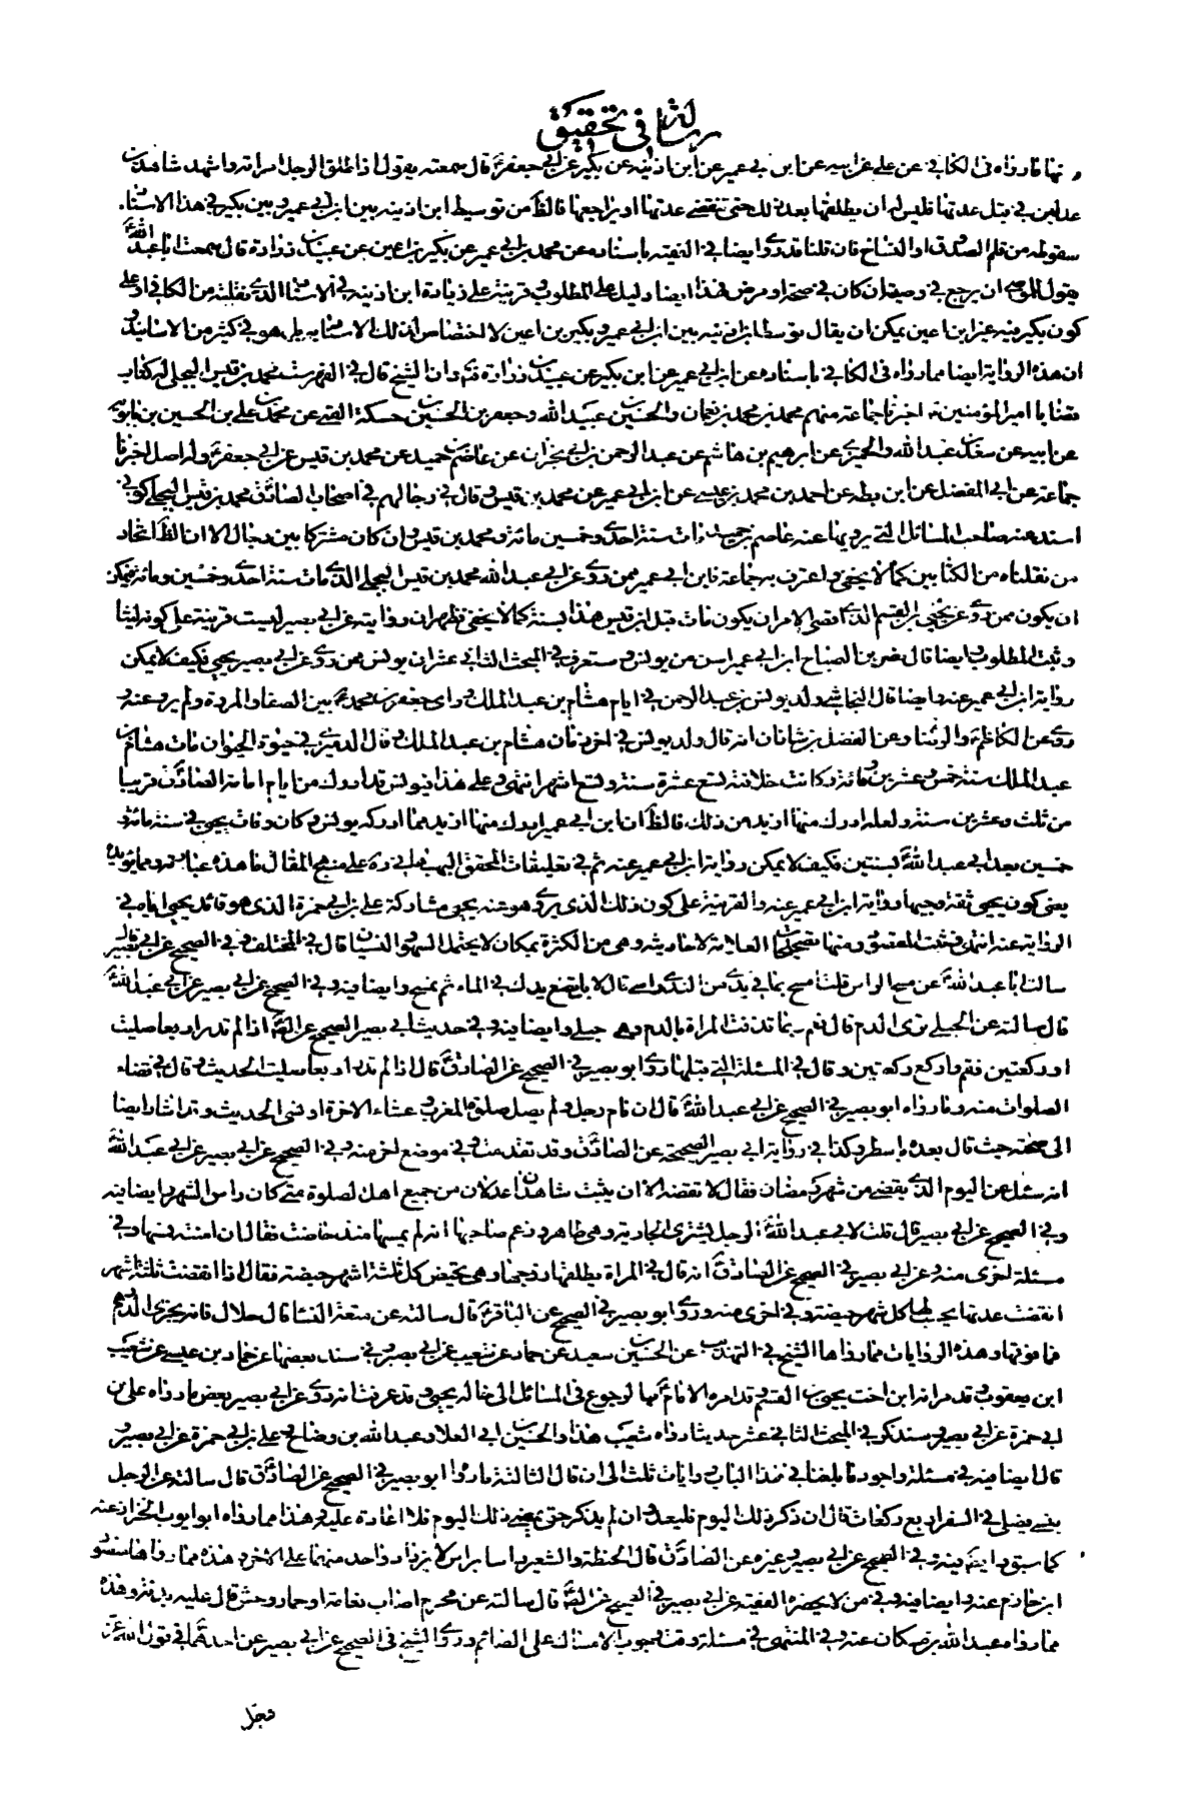 رسالة في تحقيق
منها ما رواه في الكافي عن علي عن ابيه عن ابن ابي عمير عن ابن اذينه عن بكير عن ابي جعفرؑ قال سمعته يقول اذا طلق الرجل امراته واشهد شاهدين
عدلين في قبل عدتها فليس له ان يطلقها بعد ذلك حتى تنقضي عدتها او يراجعها فالظ من توسيط ابن اذينه بين ابن ابي عمير وبين بكير في هذا الاسناد
سقوطه من قلم الصدوق او النساخ فان قلنا قد روى ايضا في الفقيه باسناده عن محمد بن ابي عمير عن بكير بن اعين عن عبيد بن زرارة قال سمعت ابا عبد اللهؑ
يقول للموصي ان يرجع في وصيته ان كان في صحة او مرض فهذا ايضا دليل على المطلوب وقرينة على زيادة ابن اذينه في الاسناد الذي نقلته من الكافي او على
كون بكير فيه غير ابن اعين يمكن ان يقال توسط ابن اذينه بين ابن ابي عمير وبكير بن اعين لا اختصاص له بذلك الاسناد به بل هو في كثير من الاسانيد
ان هذه الرواية ايضا مما رواه في الكافي باسناده عن ابن ابي عمير عن ابن بكير عن عبيد بن زرارة ثم ان الشيخ قال في الفهرست محمد بن قيس البجلي له كتاب
قضايا امير المؤمنينؑ اخبرنا جماعة منهم محمد بن محمد بن نعمان والحسين بن عبيد الله وجعفر بن الحسين بن حسكة القمي عن محمد بن علي بن الحسين بن بابويه
عن ابيه عن سعد بن عبد الله والحميري عن ابرهيم بن هاشم عن عبد الرحمن بن ابي نجران عن عاصم بن حميد عن محمد بن قيس عن ابي جعفرؑ وله اصل اخبرنا
جماعة عن ابي المفضل عن ابن بطه عن احمد بن محمد بن عيسى عن ابن ابي عمير عن محمد بن قيس وقال في رجالهم في اصحاب الصادقؑ محمد بن قيس البجلي كوفي
اسند عنه صاحب المسائل التي يرويها عنه عاصم بن حميد مات سنة احدى وخمسين مائة ومحمد بن قيس وان كان مشتركا بين رجال الا ان الظ اتحاد
من نقلناه من الكتابين كما لا يخفى واعترف به جماعة فابن ابي عمير ممن روى عن ابي عبد الله محمد بن قيس البجلي الذي مات سنة احدى وخمسين ومائة فيمكن
ان يكون ممن روى عن يحيى بن القسم الذي اقصى الامر ان يكون مات قبل ابن قيس هذا بسنة كما لا يخفى فظهر ان روايته عن ابي بصير ليست قرينة على كونه ليثا
وثبت المطلوب وايضا قال نصر بن الصباح ابن ابي عمير اسن من يونس وستعرف في المبحث الثاني عشر ان يونس ممن روى عن ابي بصير يحيى فكيف لا يمكن
رواية ابن ابي عمير عنه وايضا قال النجاشي ولد يونس بن عبد الرحمن في ايام هشام بن عبد الملك وراى جعفر بن محمدؑ بين الصفا والمروة ولم يرو عنه و
روى عن الكاظمؑ والرضاؑ وعن الفضل بن شاذان انه قال ولد يونس في اخر زمان هشام بن عبد الملك وقال الدميري في حيوة الحيوان مات هشام بن
عبد الملك سنة خمس وعشرين ومائة وكانت خلافته تسع عشرة سنة وتسع اشهر انتهى وعلى هذا فيونس قد ادرك من ايام امامة الصادقؑ قريبا
من ثلث وعشرين سنة ولعله ادرك منها ازيد من ذلك فالظ ان ابن ابي عمير ادرك منها ازيد مما ادركه يونس وكان وفات يحيى في سنة مائة و
خمسين بعد ابي عبد اللهؑ بسنتين فكيف لا يمكن رواية ابن ابي عمير عنه ثم في تعليقات المحقق البهبهاني ره على منهج المقال ما هذه عبارته ومما يؤيده
يعني كون يحيى ثقة وجيها رواية ابن ابي عمير عنه والقرينة على كون ذلك الذي يروى هو عنه يحيى مشاركة علي بن ابي حمزة الذي هو قائد يحيى اياه في
الرواية عنه انتهى فثبت المقصود ومنها تصحيحات العلامة لاحاديثه وهي من الكثرة بمكان لا يحتمل السهو والنسيان قال في المختلف وفي الصحيح عن ابي بصير قال
سالت ابا عبد اللهؑ عن مسح الراس قلت امسح بما في يدي من الندى راسي قال لا بل تضع يدك في الماء ثم تمسح وايضا فيه وفي الصحيح عن ابي بصير عن ابي عبد اللهؑ
قال سالته عن الحبلى ترى الدم قال نعم ربما قذفت المراة بالدم وهي حبلى وايضا فيه وفي حديث ابي بصير الصحيح عن الصؑ اذا لم تدر اربعا صليت
او ركعتين فقم واركع ركعتين وقال في المسئلة التي قبلها روى ابو بصير في الصحيح عن الصادقؑ قال اذا لم تدر اربعا صليت الحديث وقال في قضاء
الصلوات منه وما رواه ابو بصير في الصحيح عن ابي عبد اللهؑ قال ان نام رجل ولم يصل صلوة المغرب عشاء الاخرة او نسى الحديث وقد اشار ايضا
الى صحته حيث قال بعده باسطر وكذا في رواية ابي بصير الصحيحة عن الصادقؑ وقد تقدمت وفي موضع اخر منه وفي الصحيح عن ابي بصير عن ابي عبد اللهؑ
انه سئل عن اليوم الذي يقضى من شهر رمضان فقال لا تقضه الا ان يثبت شاهدان عدلان من جميع اهل الصلوة متى كان راس الشهر وايضا فيه
وفي الصحيح عن ابي بصير قال قلت لابي عبد اللهؑ الرجل يشترى الجارية وهي طاهر وزعم صاحبها انه لم يمسها منذ حاضت فقال ان امنته فمسها وفي
مسئلة اخرى منه وعن ابي بصير في الصحيح عن الصادقؑ انه قال في المراة يطلقها زوجها وهي تحيض كل ثلثة اشهر حيضة فقال اذا انقضت ثلثة اشهر
انقضت عدتها يحسب لها كل شهر حيضة وفي اخرى منه وروى ابو بصير في الصحيح عن الباقرؑ قال سالته عن متعة النسا قال حلال فانه يجزى الدرهم
فما فوقها وهذه الروايات مما رواها الشيخ في التهذيب عن الحسين بن سعيد عن حماد عن شعيب عن ابي بصير وفي سند بعضها عن حماد بن عيسى عن شعيب
ابن يعقوب وقد مر انه ابن اخت يحيى بن القسم وقد امره الامامؑ بالرجوع في المسائل الى خاله يحيى وقد عرفت انه روى عن ابي بصير بعض ما رواه علي بن
ابي حمزة عن ابي بصير وسنذكر في المبحث الثاني عشر حديثا رواه شعيب هذا والحسين بن ابي العلا وعبد الله بن وضاح وعلي بن ابي حمزة عن ابي بصير و
قال ايضا فيه في مسئلة واجود ما بلغنا في هذا الباب روايات ثلث الى ان قال الثالثة ما رواه ابو بصير في الصحيح عن الصادقؑ قال سالته عن الرجل
ينسى فيصلى في السفر اربع ركعات قال ان ذكر في ذلك اليوم فليعد وان لم يذكر حتى يمضى ذلك اليوم فلا اعادة عليه وهذا مما رواه ابو ايوب الخزاز عنه
كما سبق وايضا فيه وفي الصحيح عن ابي بصير وغيره عن الصادقؑ قال الحنطة والشعير راسا براس لا يزاد واحد منهما على الاخر وهذه مما رواها منصور
ابن حازم عنه وايضا فيه وفي من لا يحضره الفقيه عن ابي بصير في الصحيح عن الصؑ قال سالته عن محرم اصاب نعامة او حمار وحش قال عليه بدنة وهذه
مما رواه عبد الله بن مسكان عنه وفي المنتهى في مسئلة وقت وجوب الامساك على الصائم وروى الشيخ في الصحيح عن ابي بصير عن احدهماؑ في قول الله عز
وجل